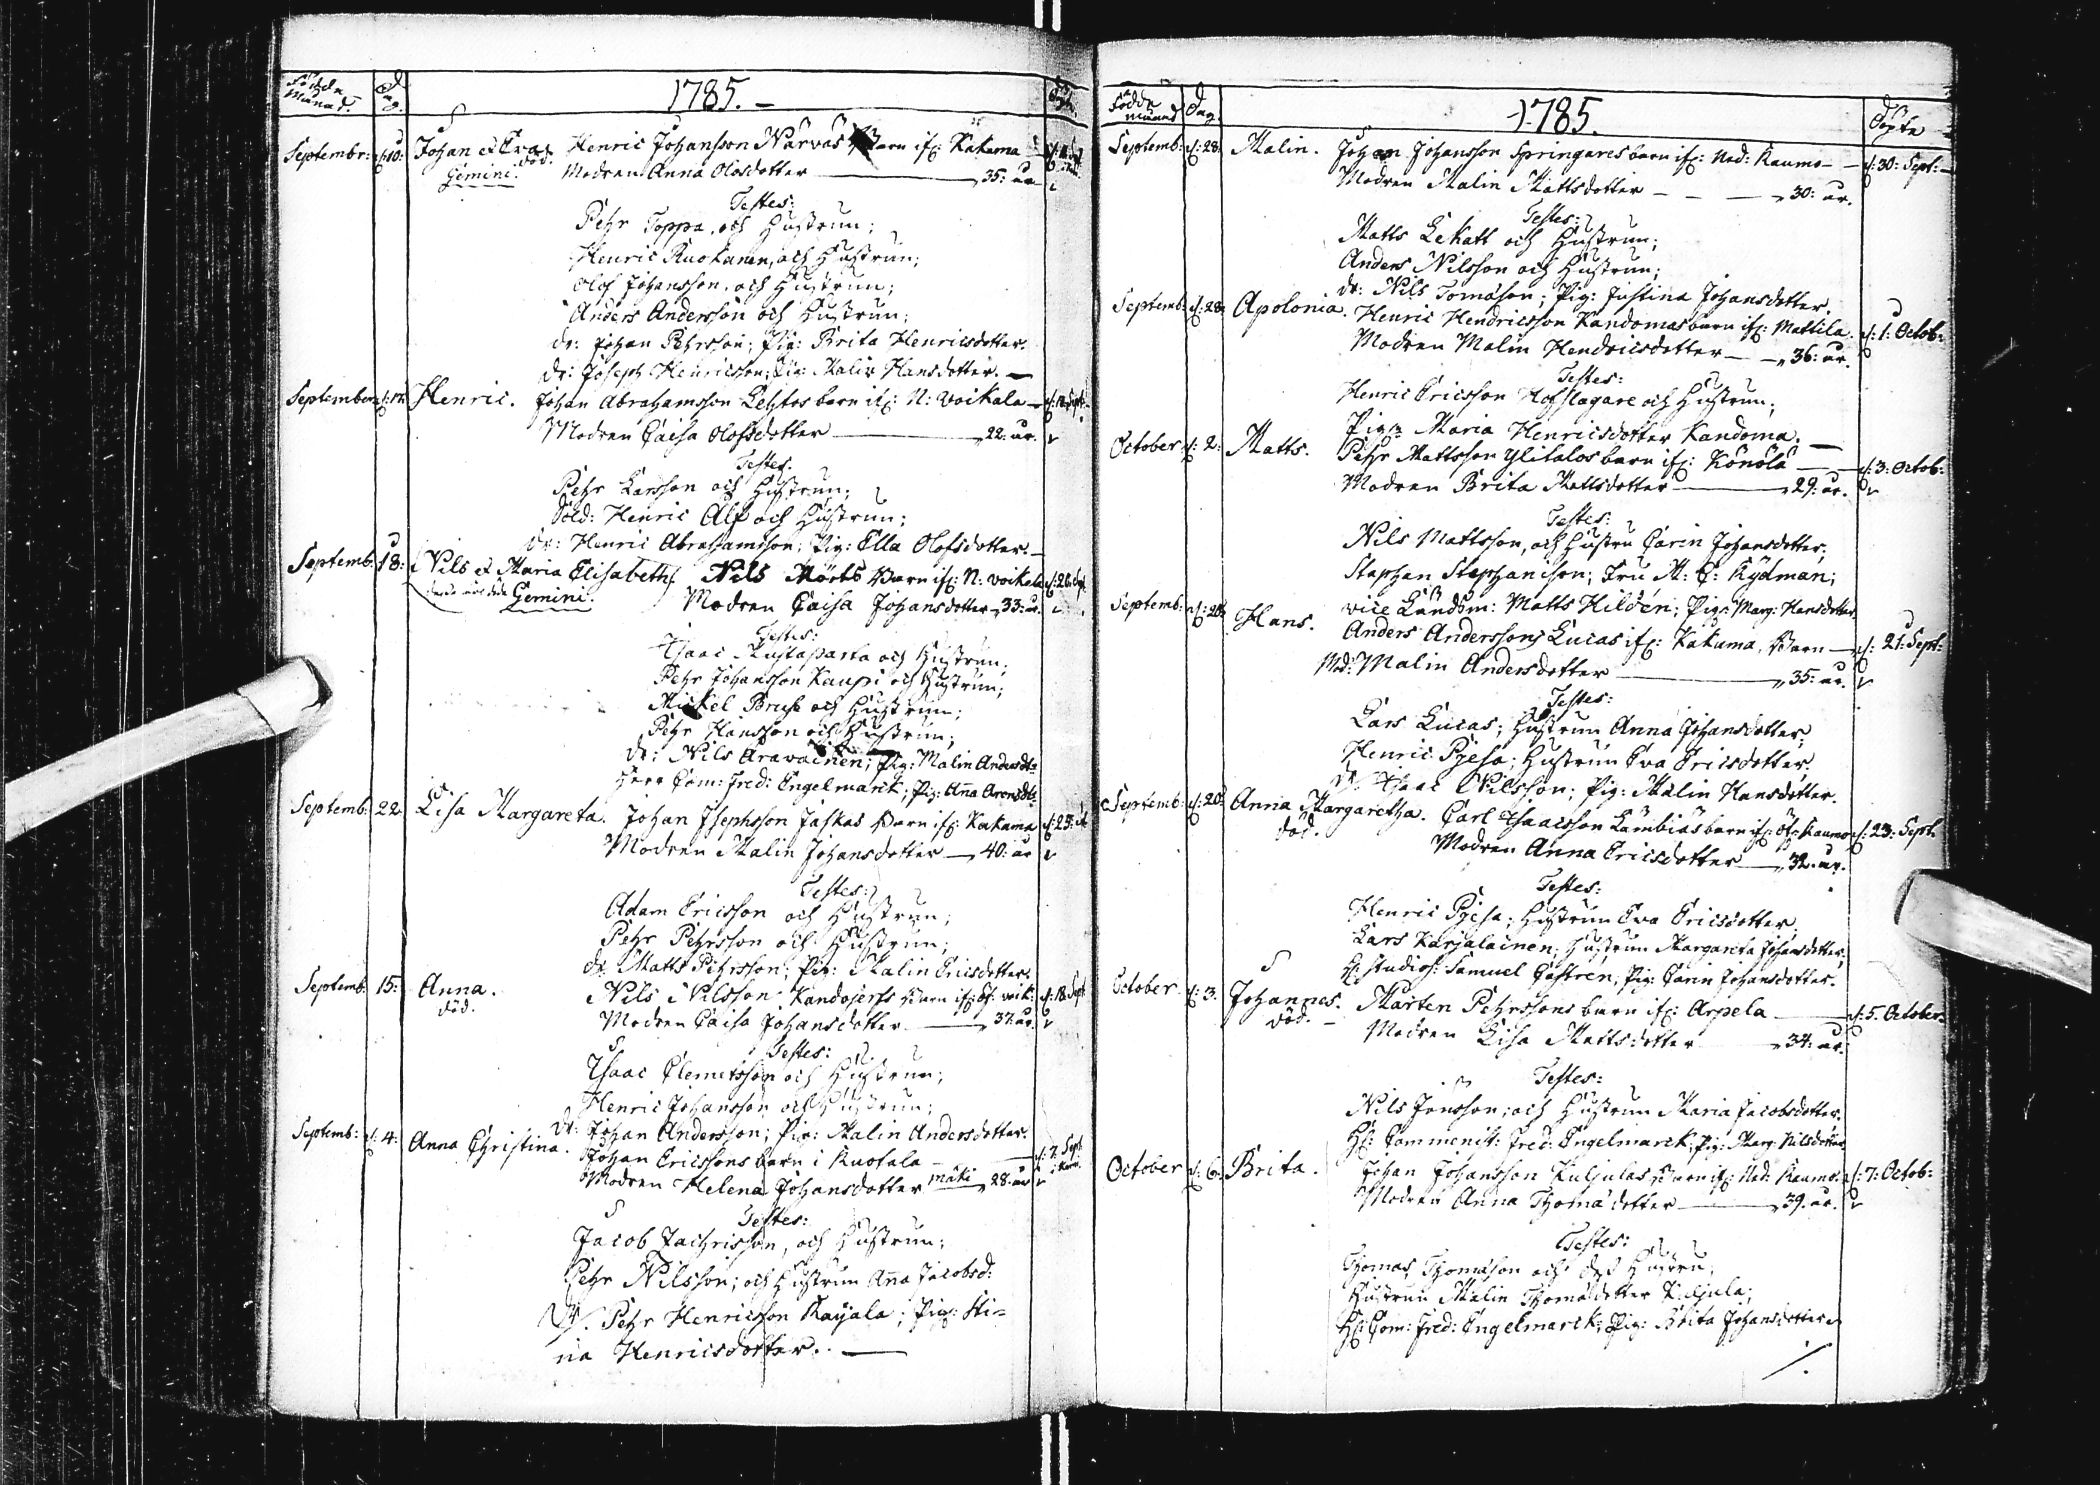 Födde Månad. Dag. 1785. –
Septembr: d: 10: Johan et Eva Henric Johansson Närväs Barn if: Kakama
Gemini. död. Modren Anna Olosdotter — 35: år
Testes:
Pehr Toppa, och Hustrun;
Henric Ruokanen, och Hustrun;
Olof Johansson, och Hustrun;
Anders Andersson och Hustrun;
dr: Johan Pehrsson; Pig: Brita Henricsdotter.
dr: Joseph Henricsson; Pig: Malin Hansdotter. —
September Henric. Johan Abrahamsson Lehtos barn if: N: Woikala —
Modren Caisa Olofsdotter — 22: år.
Testes.
Pehr Larsson och Hustrun;
Sold: Henric Alf och Hustrun;
dr: Henric Abrahamsson; Pig: Ella Olofsdotter. —
Septemb: 18: Nils et Maria Elisabeth Nils Mörts Barn if: N: Woikala
Gemini. Modren Caisa Johansdotter 33: år.
Testes:
Isaac Mustaparta och Hustrun;
Pehr Johansson Kaupi och Hustrun;
Mickel Bruse och Hustrun;
Pehr Hansson och Hustrun;
dr: Nils Arawainen; Pig: Malin Andersdt:
Herr Com: Fred: Engelmarck; Pig: Aña Arensdt:
Septemb: 22 Lisa Margareta. Johan Josephsson Jaskas Barn if: Kakama
Modren Malin Johansdotter — 40: år
Testes:
Adam Ericsson och Hustrun;
Pehr Pehrsson och Hustrun;
dr: Matts Pehrsson; Pig: Malin Ericsdotter.
Septemb: 15: Anna. Nils Nilsson Kandojerfs Barn if: Öf: Woik: d: 18: Sept
död. Modren Caisa Johansdotter — 37: år.
Testes:
Isaac Clemetsson och Hustrun;
Henric Johansson och Hustrun;
dr: Johan Andersson; Pig: Malin Andersdotter.
Septemb: d: 4: Anna Christina. Johan Ericssons barn i Kuotala — d: 7: Sept
Modren Helena Johansdotter mäki 28: år
Testes:
Jacob Zachrisson, och Hustrun;
Pehr Nilsson; och Hustrun Aña Jacobsd:
Dr. Pehr Henricsson Raijala; Pig: Sti-
na Henricsdotter. —
Födde Månad Dag. 1785. Döpte
Septemb: d: 28: Malin. Johan Johansson Springares barn if: Ned: Raumo — d: 30: Sept: —
Modren Malin Mattsdotter — 30: år.
Testes:
Matts Lekatt och Hustrun;
Anders Nilsson och Hustrun;
dr: Nils Tomasson; Pig: Justina Johansdotter.
Septemb: d: 28: Apolonia. Henric Hendricsson Kandomas barn if: Mattila d: 1: Octob:
Modren Malin Hendricsdotter — 36: år.
Testes:
Henric Ericsson Hofslagare och Hustrun;
Pig: Maria Henricsdotter Kandoma. —
October d: 2: Matts. Pehr Mattsson Ylitalos barn if: Könölä — d: 3: Octob:
Modren Brita Mattsdotter — 29: år.
Testes:
Nils Mattsson, och Hustru Carin Johansdotter;
Stephan Stephanison; Fru M: C: Rydman;
vice Landsm: Matts Hildén; Pig: Marg: Hansdotter
Septemb: d: 20: Hans. Anders Anderssons Lucas if: Kakama, Barn — d: 21: Sept:
Mod: Malin Andersdotter — 35: år.
Testes:
Lars Lucas; Hustrun Anna Johansdotter;
Henric Pyesa; Hustrun Eva Ericsdotter.
dr: Isaac Nilsson; Pig: Malin Hansdotter.
Septemb: d: 20: Anna Margaretha. Carl Isaacsson Lambias barn if: Öf: Raumo d: 23: Sept
död. Modren Anna Ericsdotter — 32: år.
Testes:
Henric Pyesa; Hustrun Eva Ericsdotter.
Lars Karjalainen; Hustrun Margareta Johansdotter;
H: Studios: Samuel Castren; Pig: Carin Johansdotter.
October. d: 3. Johannes. Mårten Pehrssons barn if: Arpela — d: 5. October.
död. — Modren Lisa Mattsdotter 34: år.
Testes:
Nils Jönsson; och Hustrun Maria Jacobsdotter.
Hr: Comminist: Fred: Engelmarck; Pig: Marg: Nilsdotter
October d: 6: Brita. Johan Johansson Kuljulas Barn if: Ned: Raumo. d: 7: Octob:
Modren Anna Thomædotter — 39. år.
Testes:
Thomas Thomasson och dess Hustru;
Hustrun Malin Thomædotter Kuljula;
Hr: Com: Fred: Engelmarck; Pig: Brita Johansdotter